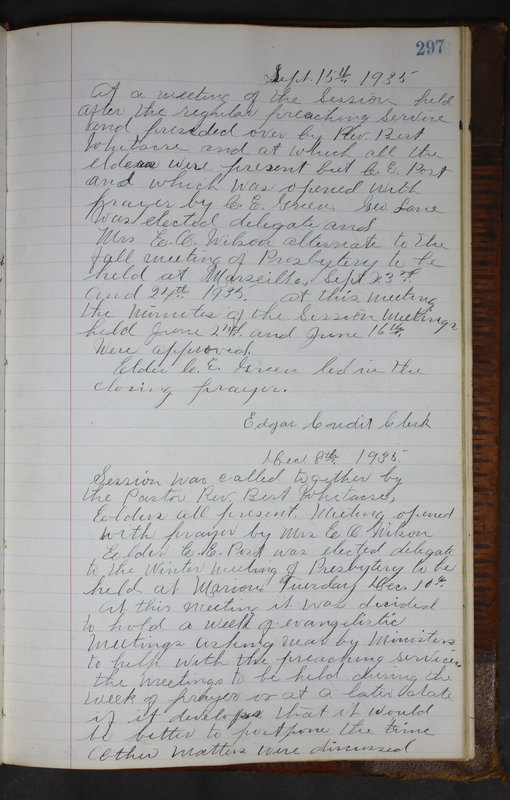 297
Sept. 15th 1935
At a meeting of the Session held
after the regular preaching service
and presided over by Rev. Bert
Whitacre and at which all the
elders were present but C. E. Post
and which was opened with
prayer by C. E. Green. Geo. Lane
was elected delegate and
Mrs E. C. Wilson alternate to the
fall meeting of Presbytery to be
held at Marseilles, Sept 23rd
and 24th 1935. at this meeting
the Minutes of the Session Meetings
held June 2nd. and June 16th.
were approved.
Elder C. E. Green led in the
closing prayer.
Edgar Condit Clerk
Dec 8th. 1935
Session was called together by
the Pastor Rev. Bert Whitacre,
Eolders all present. Meeting opened
with prayer by Mrs E. C. Wilson
Eolder C. E. Post was elected delegate
to the Winter meeting of Presbytery to be
held at Marion Tuesday Dec. 10th.
at this meeting it was decided
to hold a week of evangelistic
Meetings asking near by Ministers
to help with the preaching services
the meetings to be held during the
week of prayer or at a later date
if it develops that it would
be better to postpone the time
Other matters were discussed